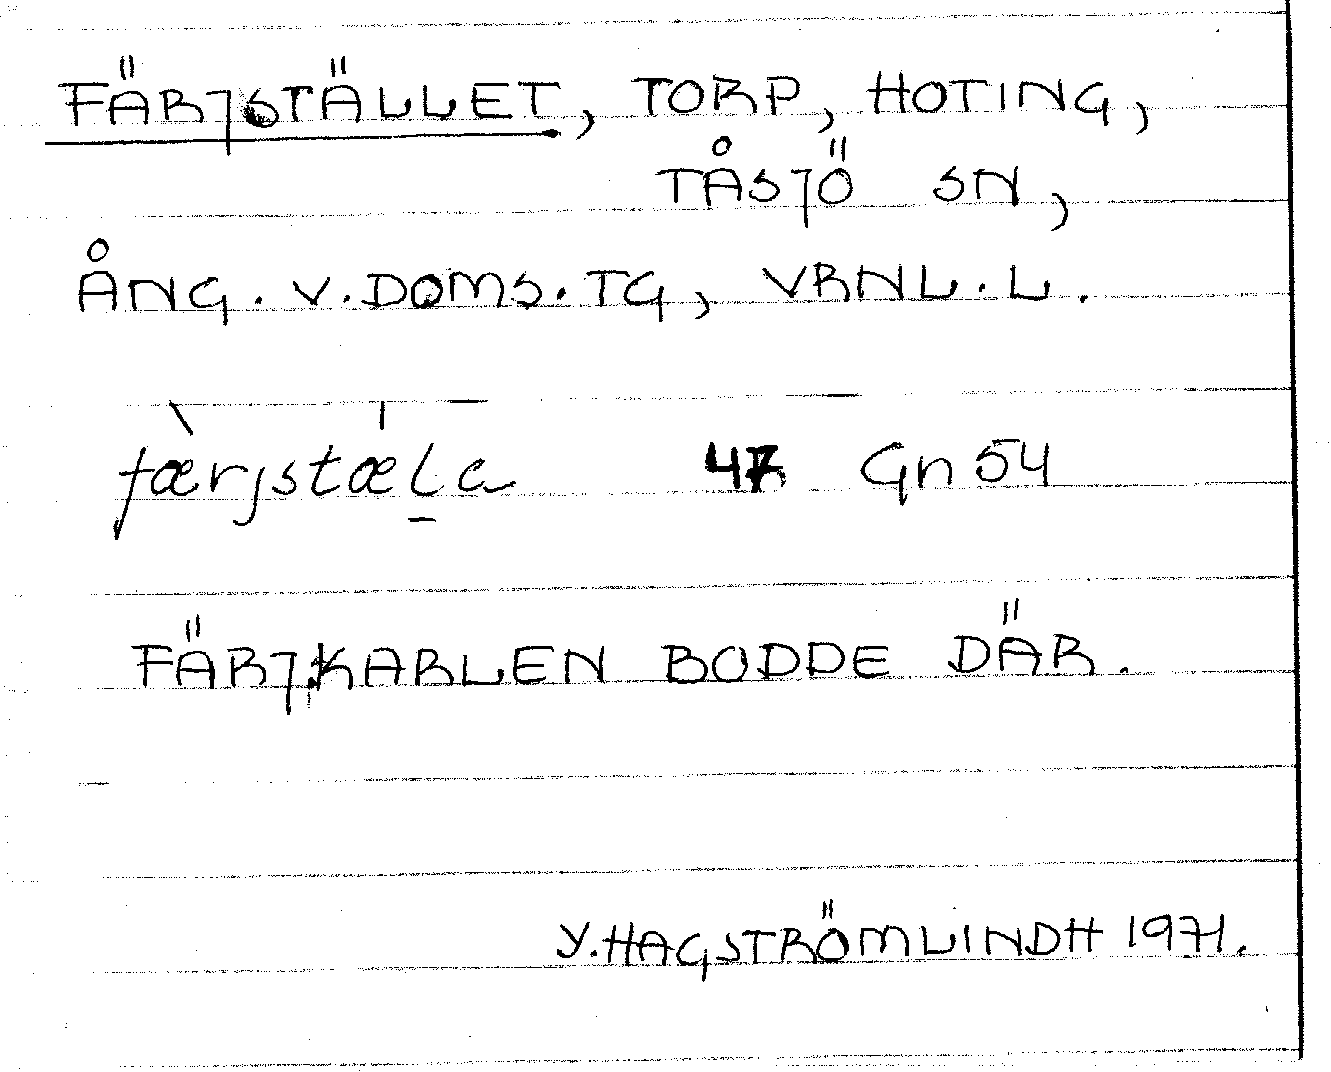 FÄRJSTÄLLET, TORP, HOTING,
TÅSJÖ SN,
ÅNG. V. DOMS. TG, VBNL. L.
færjstæla Gn 54
FÄRJKARLEN BODDE DÄR.
Y. HAGSTRÖMLINDH 1971.